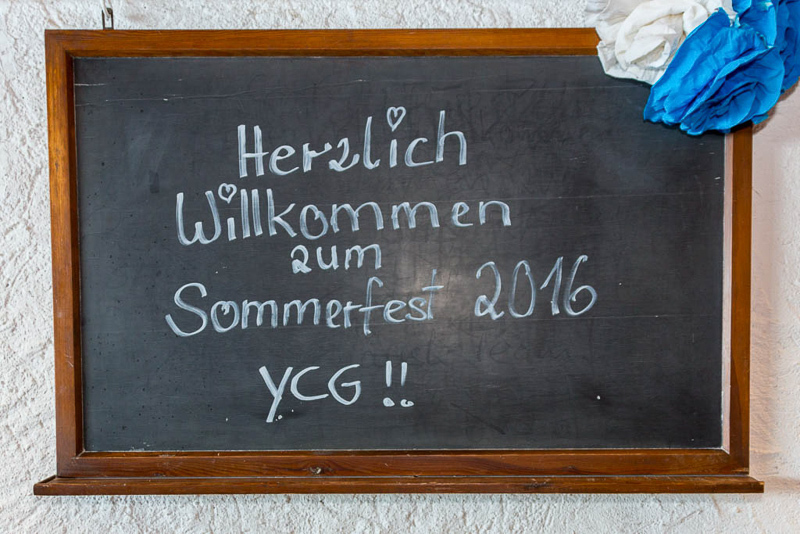 Herzlich
Willkommen
zum
Sommerfest 2016
YCG !!